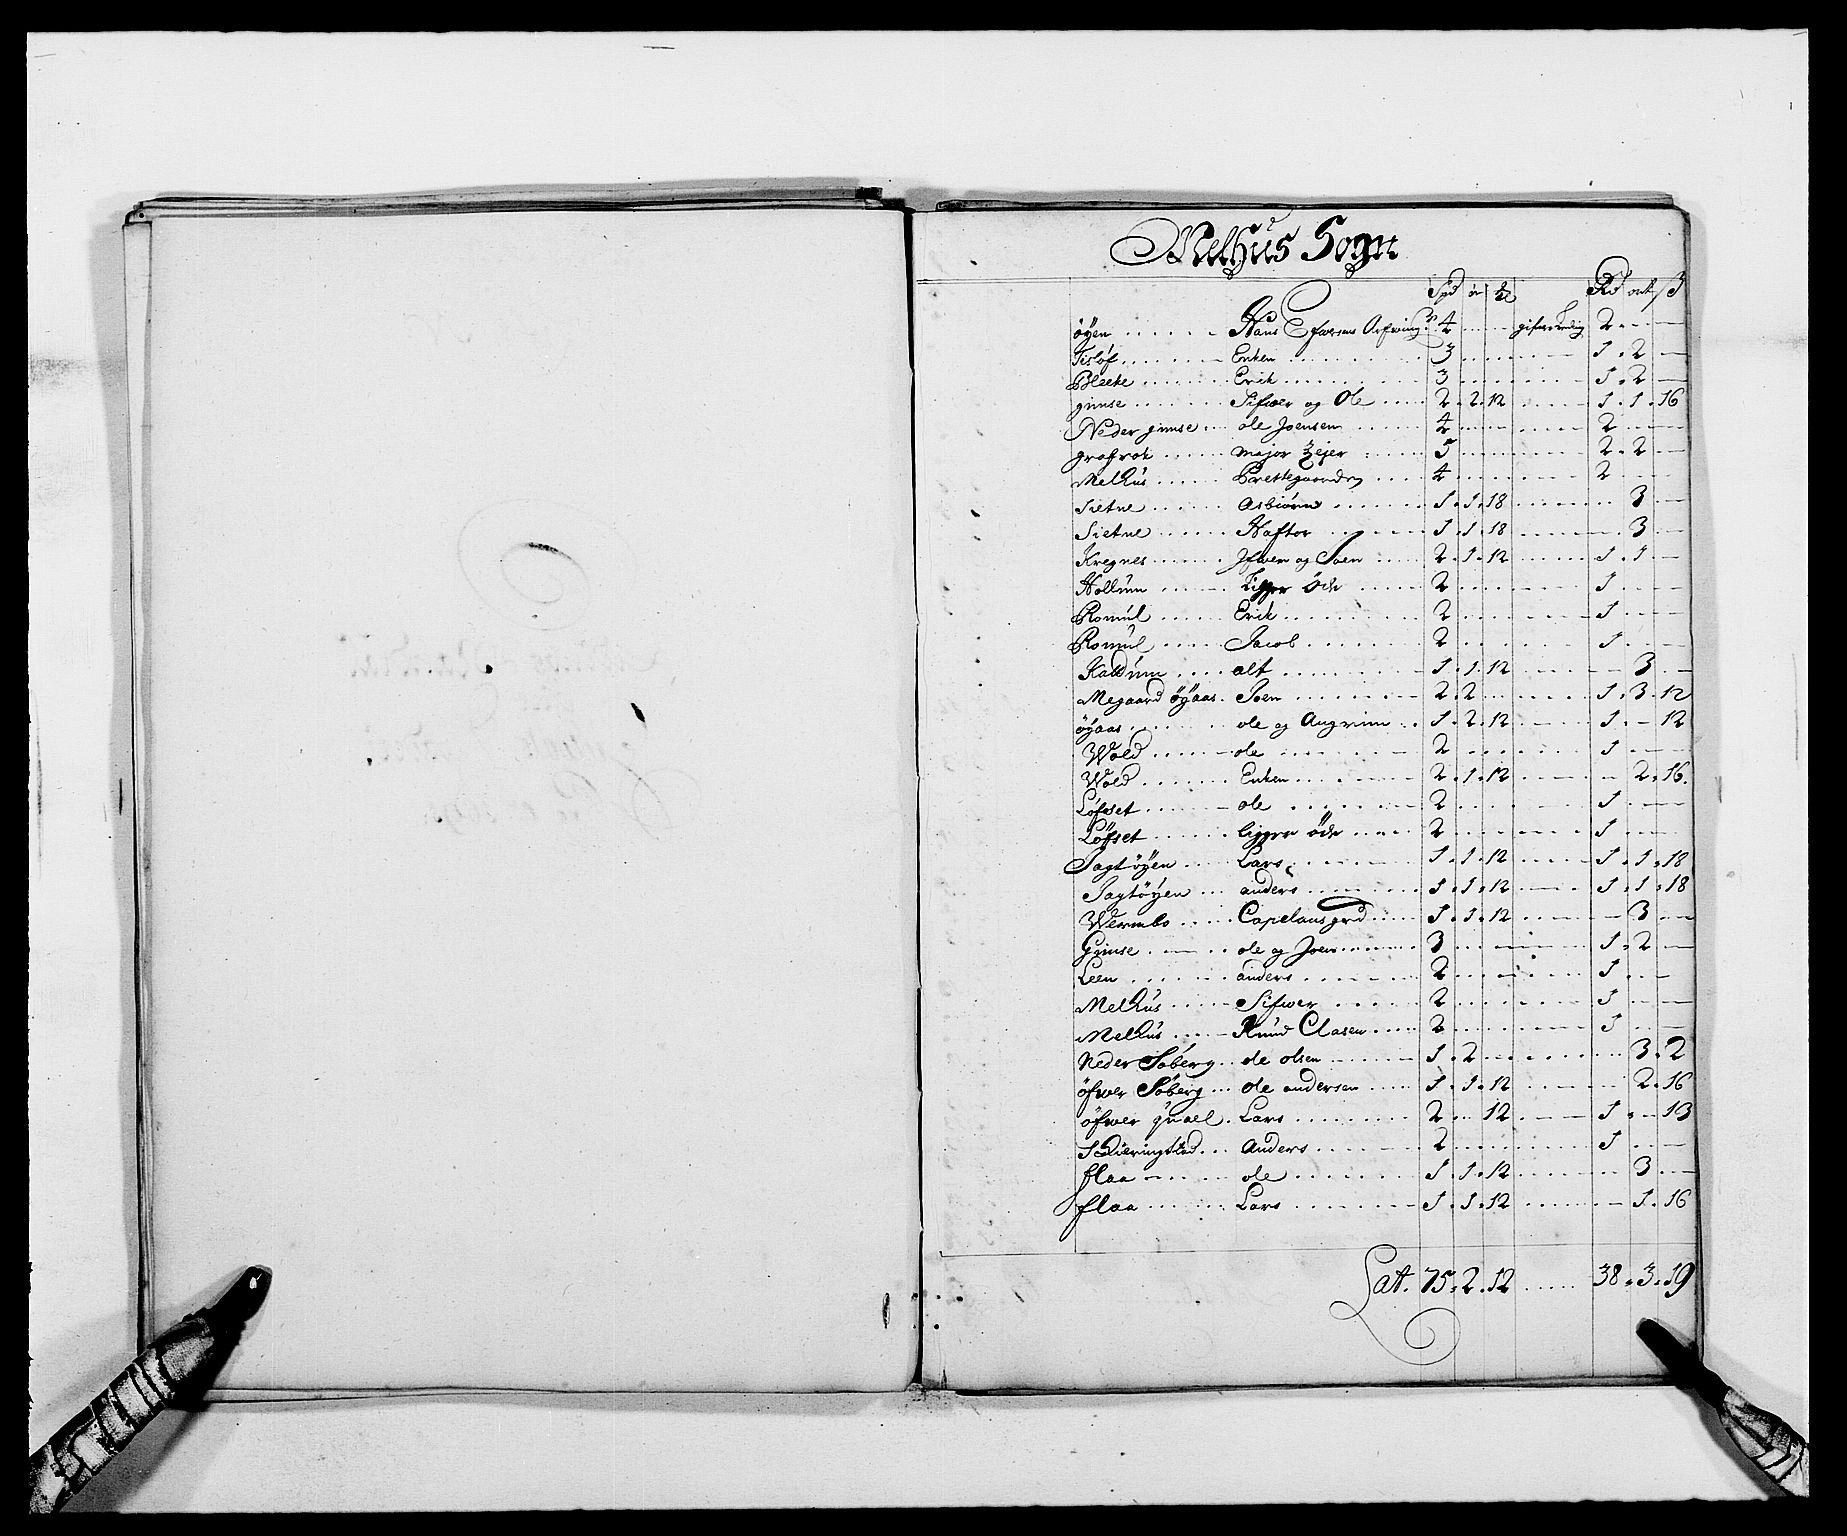 Melhus Sogn
Spd ör Rd ort ß
öyen Hans 4 2
Tisløf Enken 3 1 2
Bleeke Erik 3 1 2
gimse Sifwer og Ole 2 2 12 1 1 16
Neder gimse ole Joensen 4 2
grafrok major 5 2 2
Melhus Prestegaarden 4 2
Sietne Asbiørn 1 1 18 3
Sietne Haftor 1 1 18 3
Kregnes Jfwer og Joen 2 1 12 1 1
Hollum Ligger öde 2 1
Romúl Erik 2 1
Romúl Jacob 2 1
Kaldúm alf 1 1 12 3
Megaard öÿaas Joen 2 2 1 3 12
öÿaas ole og Angrim 1 2 12 1 12
Wold ole 2 1
Wold Enken 2 1 12 2 16
Løfset ole 2 1
Løfset ligger öde 2 1
Jagtöyen Lars 1 1 12 1 1 18
Jagtöyen anders 1 1 12 1 1 18
Wermbo Capelans grd 1 1 12 3
Gimse ole og Joen 3 1 2
Leen anders 2 1
Melhus Sifwer 2 1
Melhus Knud Clasen 2 1
Neder Söberg ole olsen 1 2 3 2
öfwer Söberg ole andersen 1 1 12 2 16
öfwer quael Lars 2 12 1 13
Skieringstad Anders 2 1
flaa ole 1 1 12 3
flaa Lars 1 1 12 1 16
Lat. 75 2 12 38 3 19